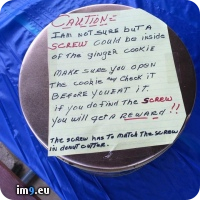 CAUTION=
I AM NOT SURE BUT A
SCREW COULD BE INSIDE
OF THE GINGER COOKIE
MAKE SURE YOU OPEN
THE COOKIE AND CHECK IT
BEFORE YOU EAT IT.
IF YOU DO FIND THE SCREW
YOU WILL GET A REWARD!!
THE SCREW HAS TO MATCH THE SCREW
IN DONUT CUTTER.
im9.eu